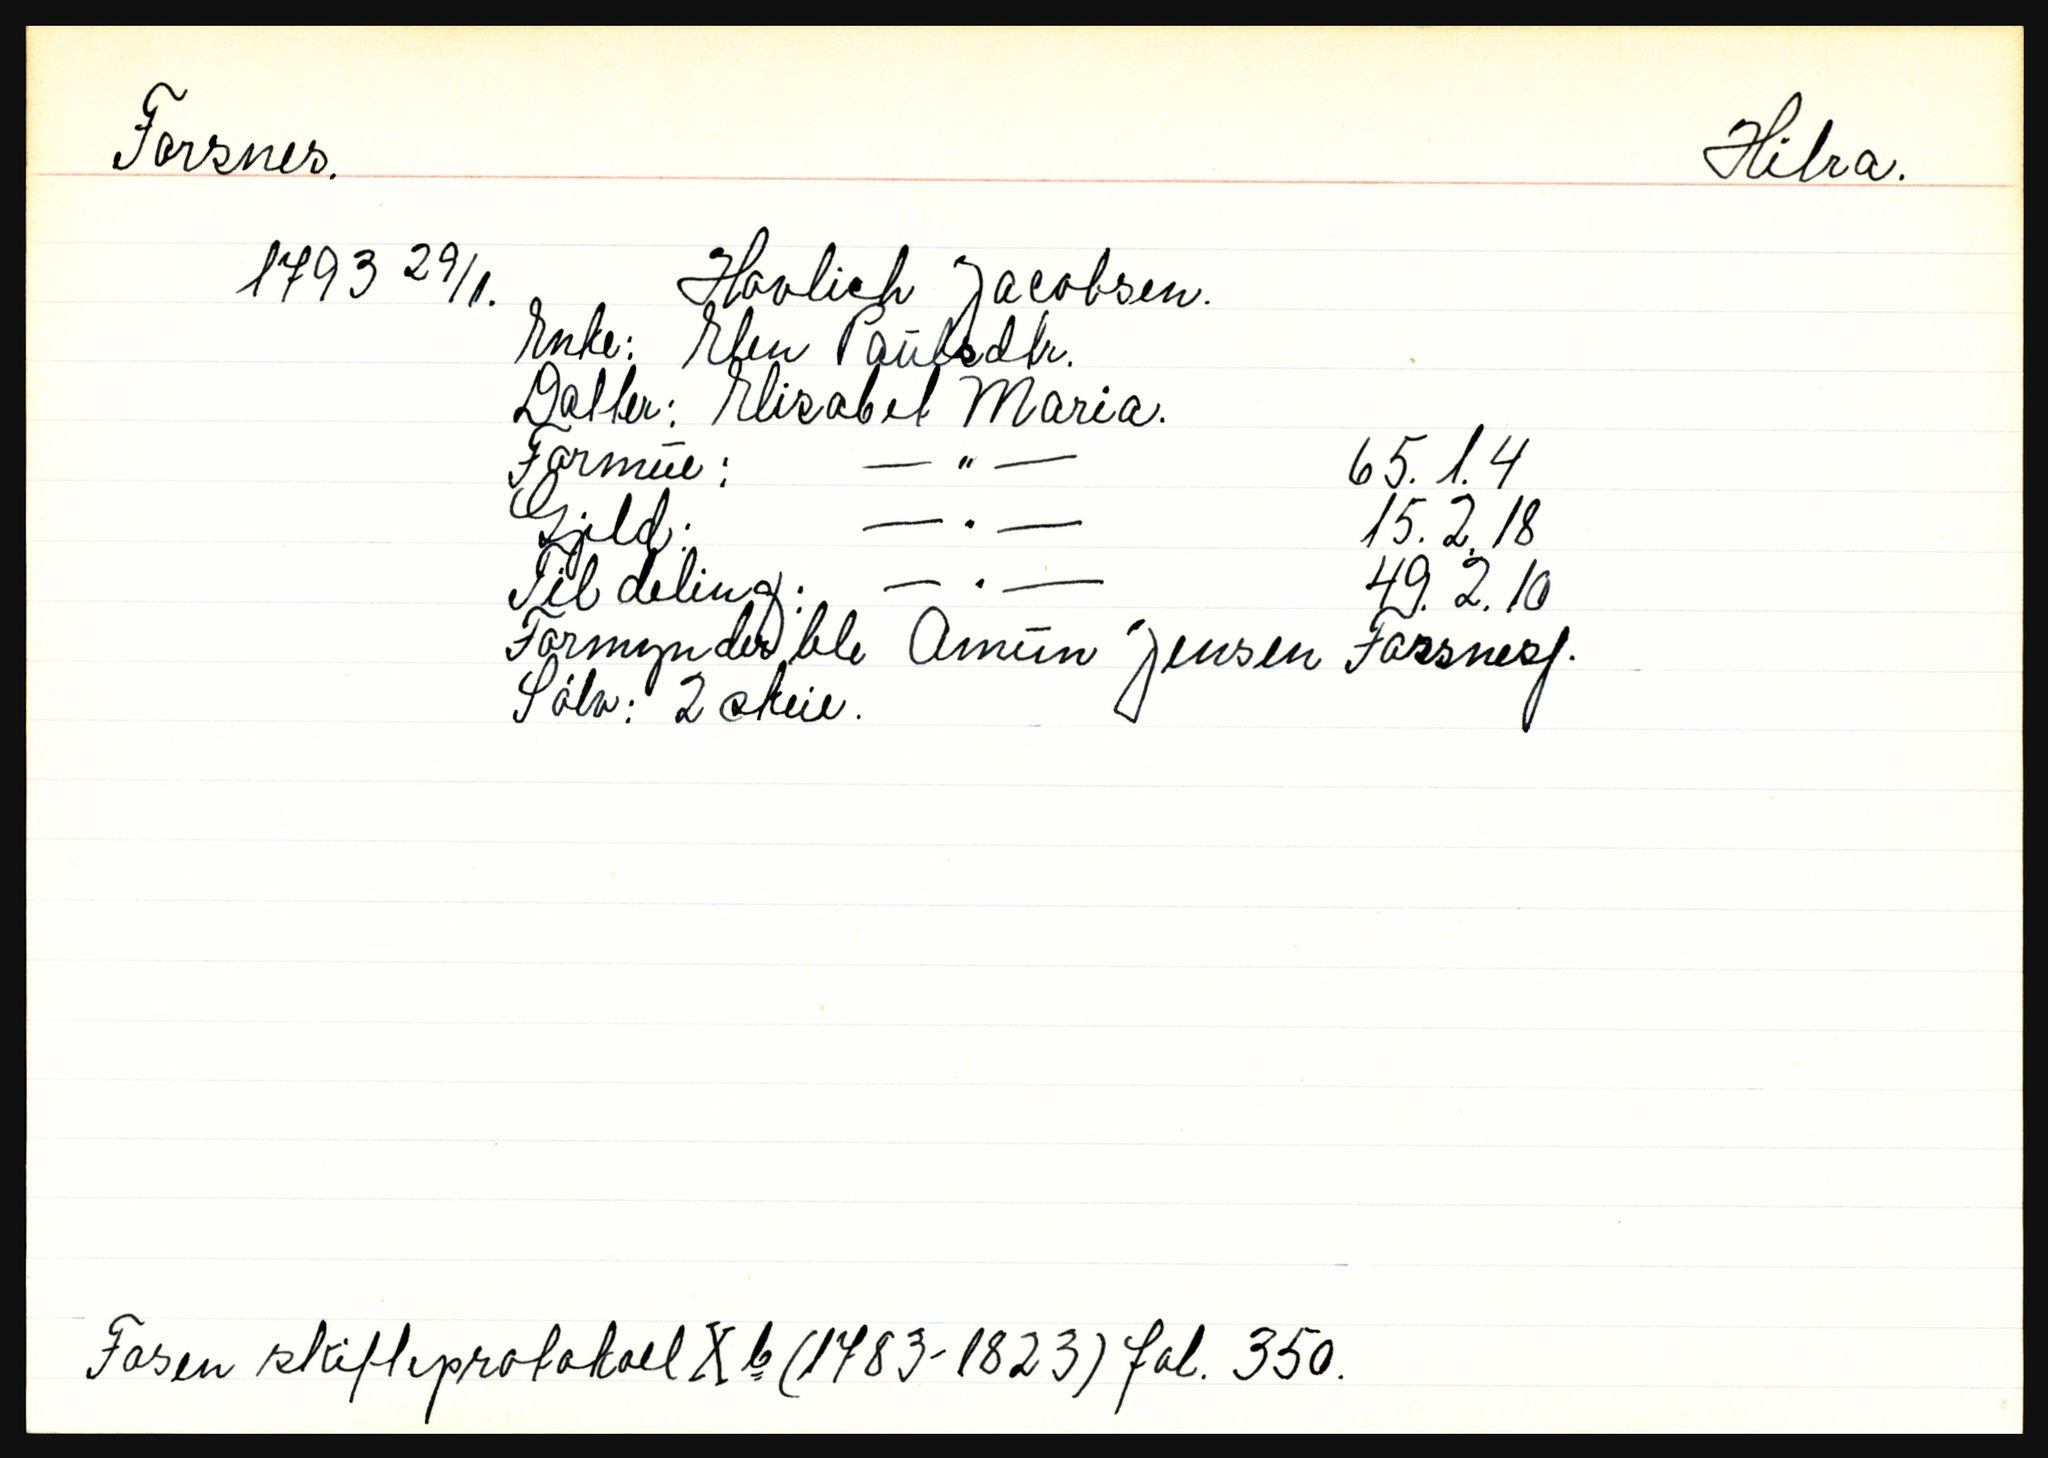 Forsnes. Hitra.
1793 29/1. Havlich Jacobsen.
Enke: Elen Paulsdtr.
Datter: Elisabet Maria.
Formue: — " — 65.1.4
Gjeld: — " — 15.2.18
Til deling: — " — 49.2.10
Formynder ble Amun Jensen Forsnes.
Sölv: 2 skeie.
Fosen skifteprotokoll X b (1783-1823) fol. 350.